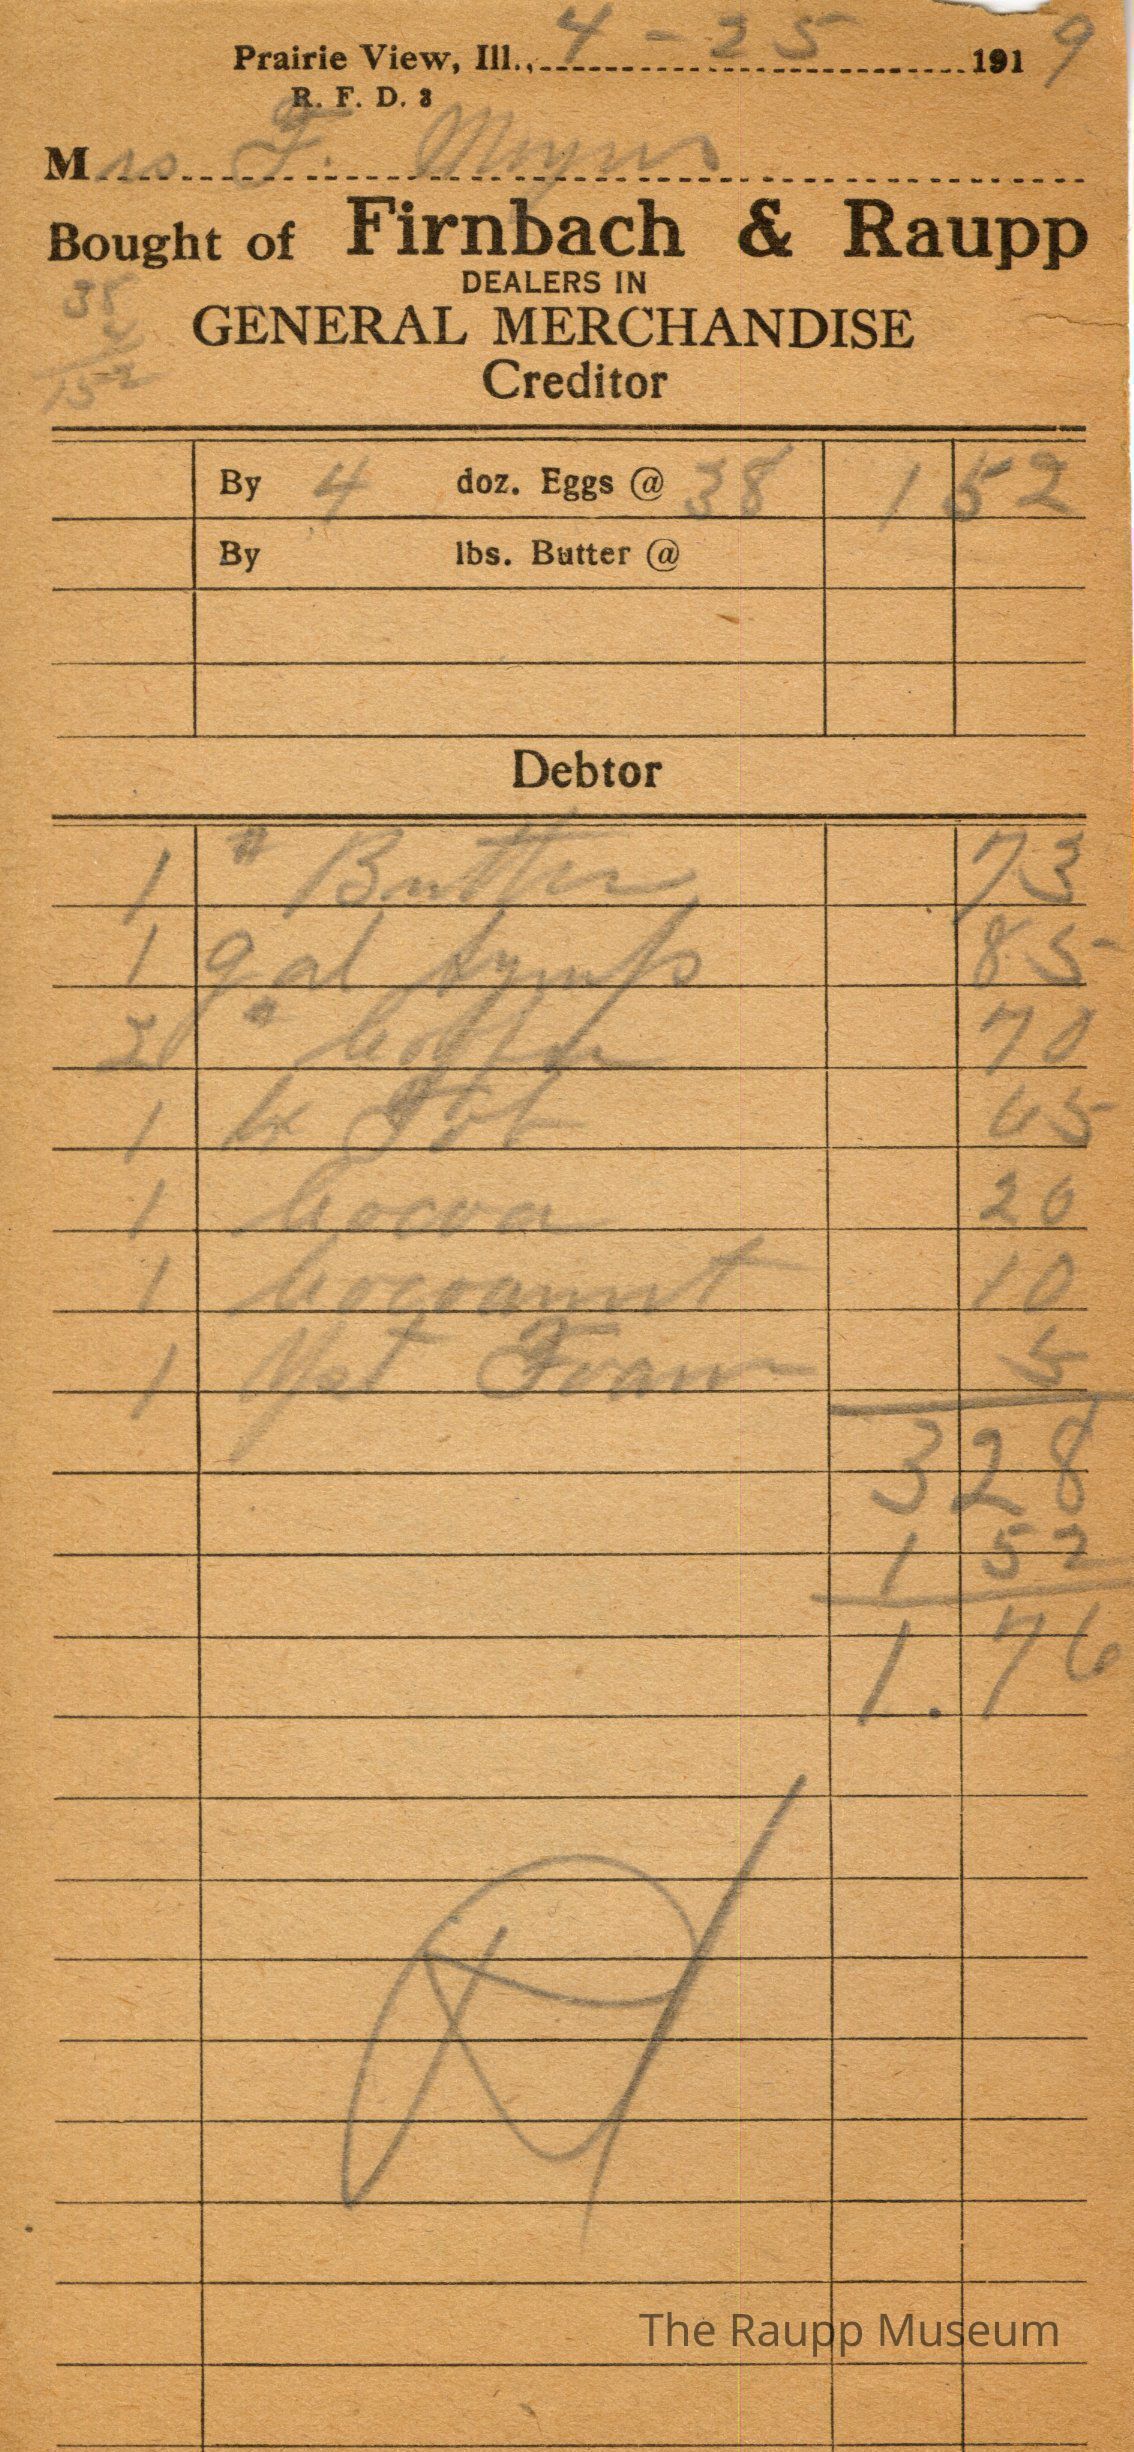 Prairie View, Ill., 4-25 1919
R. F. D. 3
Mrs F. Meyers
Bought of Firnbach & Raupp
DEALERS IN
GENERAL MERCHANDISE
Creditor
38
4
152
By 4 doz. Eggs @ 38 1 52
By lbs. Butter @
Debtor
1 # Butter 73
1 gal syrup 85
2 # Coffee 70
1 65
1 Cocoa 20
1 Cocoanut 10
1 Yst Foam 5
3 28
1 52
1.76
The Raupp Museum